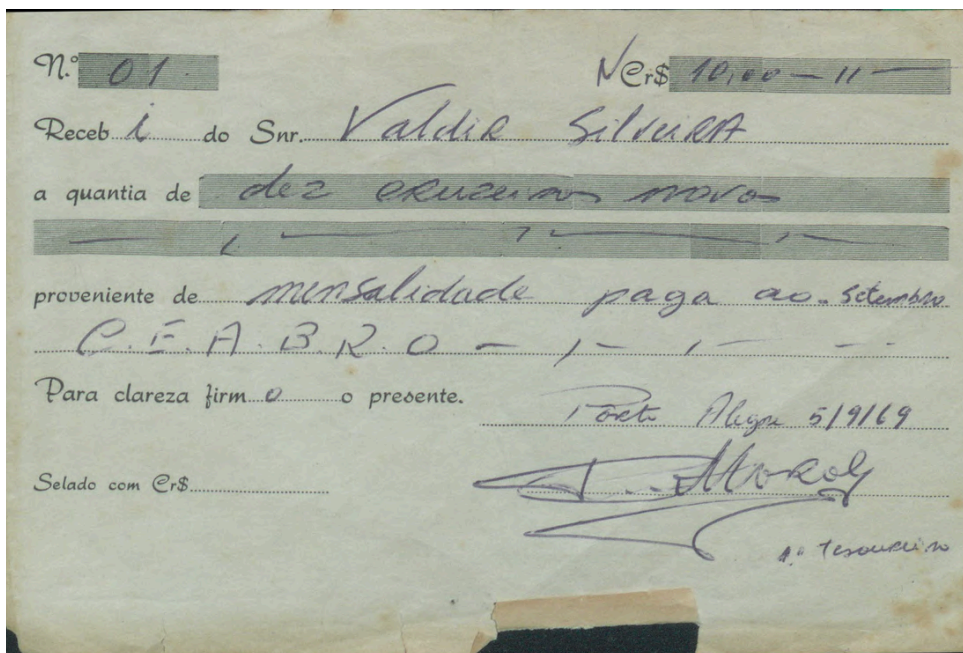 N.º 01. NCr$ 10,00 - 11 -
Receb i do Snr. Valdir Silveira
a quantia de dez cruzeiros novos
proveniente de mensalidade paga ao. Setembro
C.E.A.B.R.O - , - , - - -
Para clareza firm o o presente.
Porto Alegre 5/9/69
Selado com Cr$
1º Tesoureiro